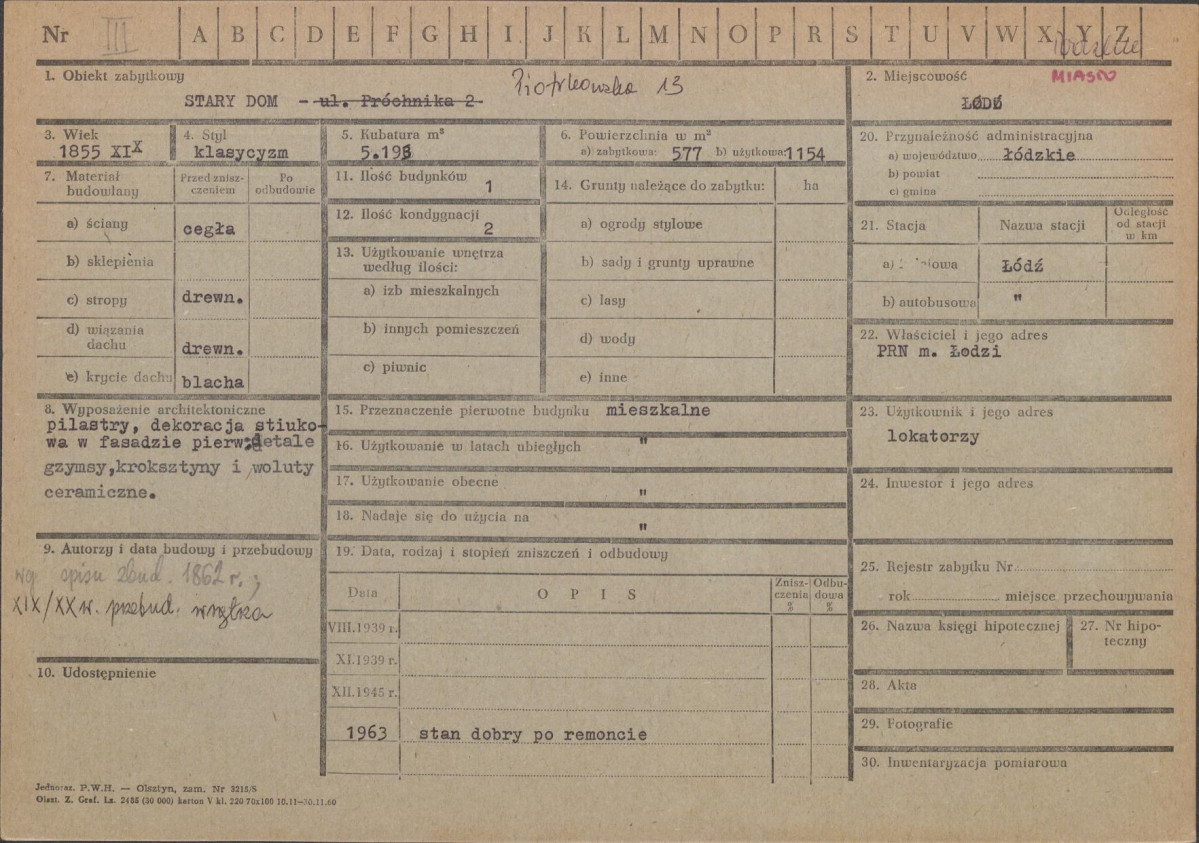 Nr III A B C D E F G H I J K L M N O P R S T U V W X Y Z
1. Obiekt zabytkowy
Piotrkowska 13
STARY DOM - ul. Próchnika 2
2. Miejscowość
MIASTO
ŁÓDŹ
3. Wiek
1855 XIX
4. Styl
klasycyzm
5. Kubatura m³
5.193
6. Powierzchnia w m²
a) zabytkowa: 577 b) użytkowa: 1154
20. Przynależność administracyjna
a) województwo łódzkie
b) powiat
c) gmina
7. Materiał budowlany
Przed zniszczeniem
Po odbudowie
a) ściany cegła
b) sklepienia
c) stropy drewn.
d) wiązania dachu drewn.
e) krycie dachu blacha
11. Ilość budynków 1
12. Ilość kondygnacji 2
13. Użytkowanie wnętrza
według ilości:
a) izb mieszkalnych
b) innych pomieszczeń
c) piwnic
14. Grunty należące do zabytku: ha
a) ogrody stylowe
b) sady i grunty uprawne
c) lasy
d) wody
e) inne
21. Stacja Nazwa stacji Odległość od stacji w km
a) Łódź
b) autobusowa "
22. Właściciel i jego adres
PRN m. Łodzi
8. Wyposażenie architektoniczne
pilastry, dekoracja stiuko-
wa w fasadzie pierw; detale
gzymsy,kroksztyny i woluty
ceramiczne.
15. Przeznaczenie pierwotne budynku mieszkalne
16. Użytkowanie w latach ubiegłych "
17. Użytkowanie obecne "
18. Nadaje się do użycia na "
23. Użytkownik i jego adres
lokatorzy
24. Inwestor i jego adres
9. Autorzy i data budowy i przebudowy
wg spisu zbud. 1862 r.;
XIX/XX w. przebud.
10. Udostępnienie
19. Data, rodzaj i stopień zniszczeń i odbudowy
Data OPIS Zniszczenia % Odbudowa %
VIII.1939 r.
XI.1939 r.
XII.1945 r.
1963 stan dobry po remoncie
25. Rejestr zabytku Nr
rok miejsce przechowywania
26. Nazwa księgi hipotecznej
27. Nr hipoteczny
28. Akta
29. Fotografie
30. Inwentaryzacja pomiarowa
Jednoraz. P.W.H. — Olsztyn, zam. Nr 3215/S
Olszt. Z. Graf. Lz. 2485 (30 000) karton V kl. 220 70x100 10.11—30.11.60